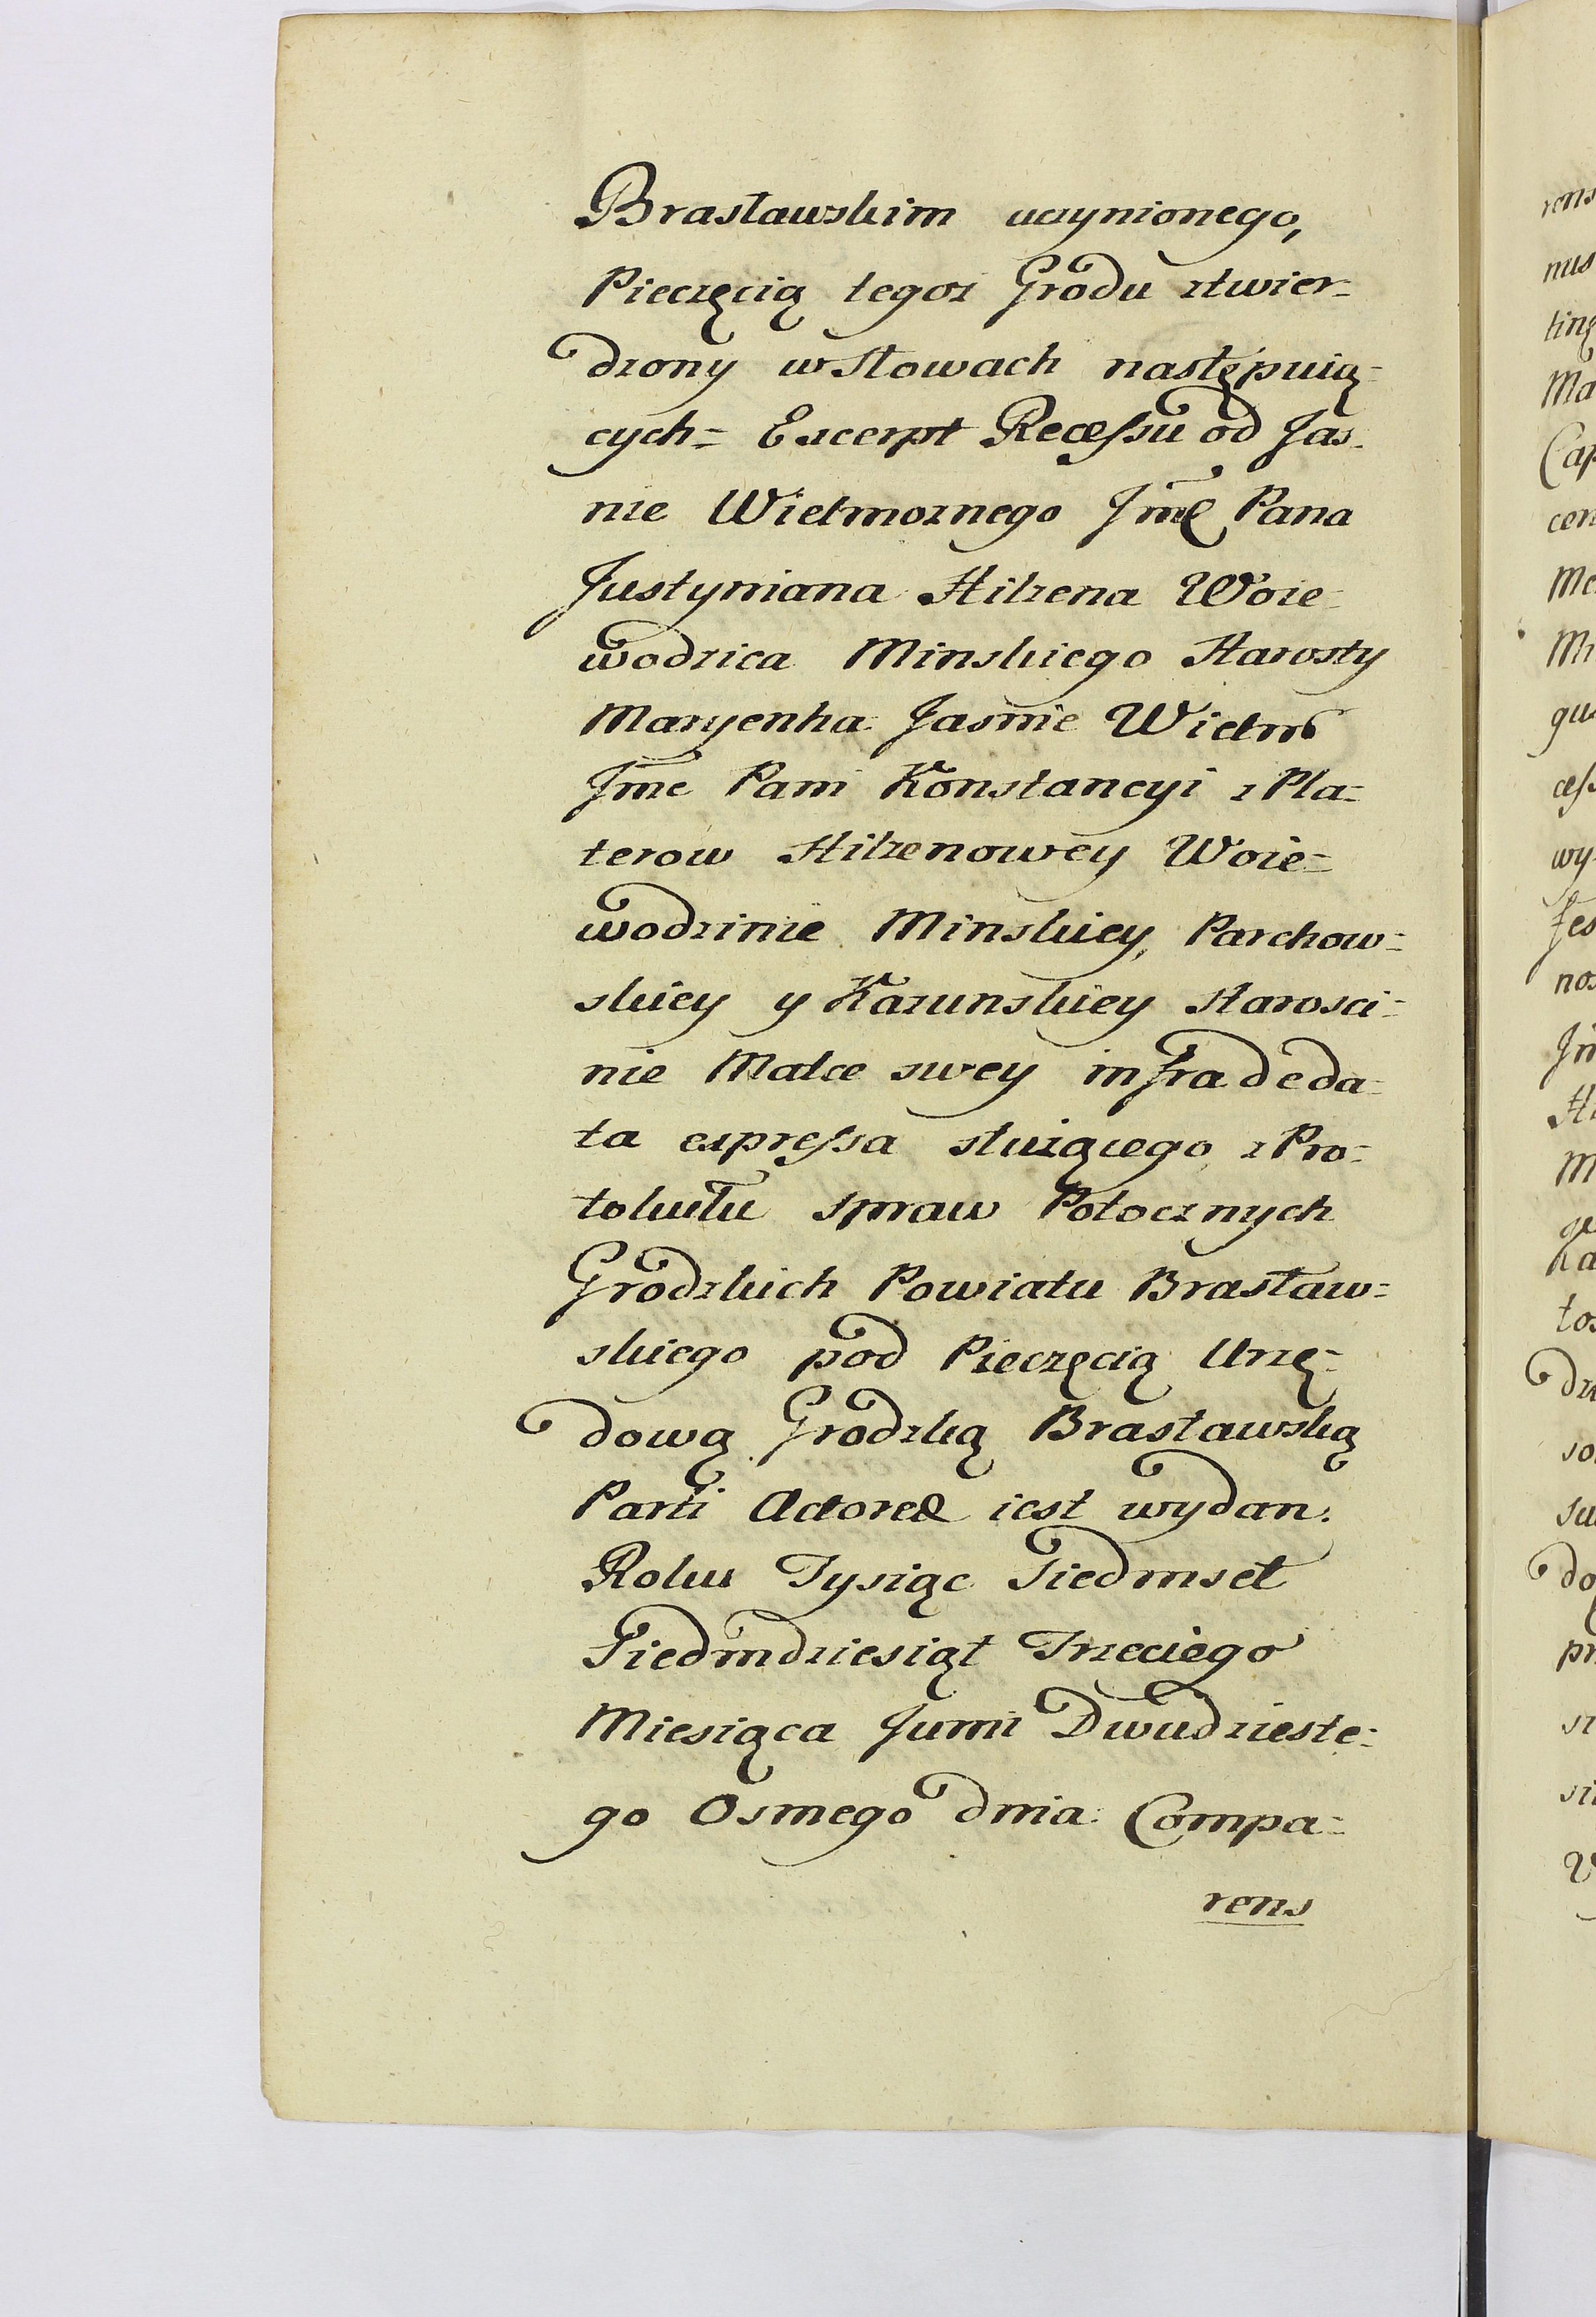 Brasławskim uczynionego,
Pieczęcią tegoz Grodu ztwier=
dzony w Słowach następuią=
cych= Excerpt Recessu od Jas=
nie Wielmoznego Jmć Pana
Justyniana Hilzena Woie=
wodzica Minskiego Starosty
Maryenha: Jasnie Wielm̃
Jmć Pani Konstancyi z Pla=
terow Hilzenowey Woie=
wodzinie Minskiey, Parchow=
skiey y Kazunskiey Starosci=
nie Matce swey infra de da=
ta expressa słuzącego z Pro=
tokułu spraw Potocznych
Grodzkich Powiatu Brasław=
skiego pod Pieczęcią Urzę=
dową Grodzką Brasławską
Parti Actoreæ iest wydan:
Roku Tysiąc Siedmset
Siedmdziesiąt Trzeciego
Miesiąca Junii Dwudzieste=
go Osmego dnia: Compa=
rens
rens
nus
Ma
Cap
cen
Mi
wy
Jes
M
do